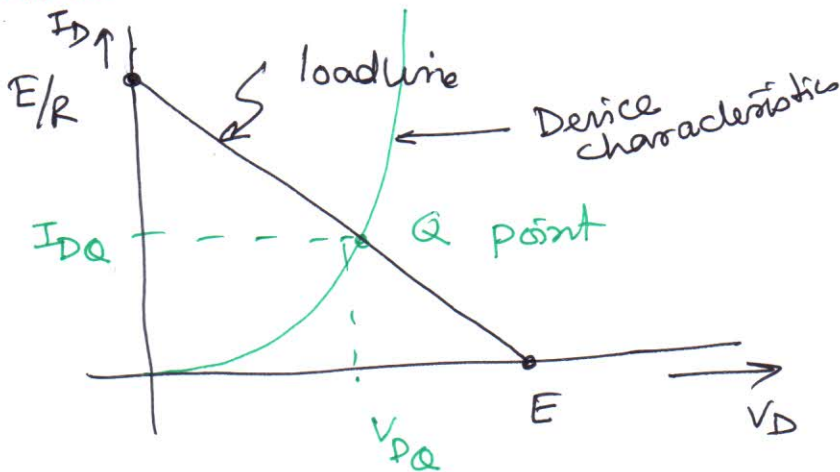 I_D ↑
E/R
loadline
Device
characteristics
I_DQ
Q point
E
V_D
V_DQ